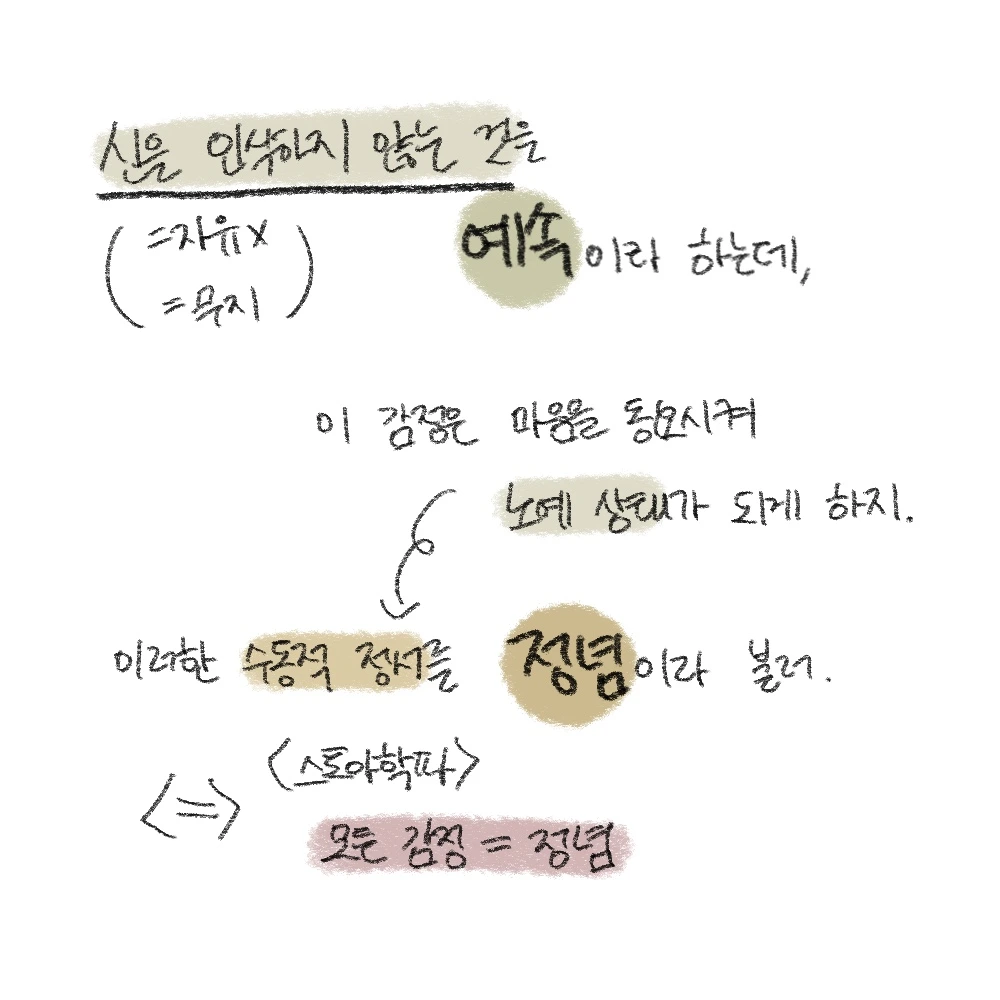 신을 인식하지 않는 것을
(=자유x
=무지)
예속이라 하는데,
이 감정은 마음을 동요시켜
노예 상태가 되게 하지.
이러한 수동적 정서를 정념이라 불러.
<=> <스토아학파>
모든 감정 = 정념